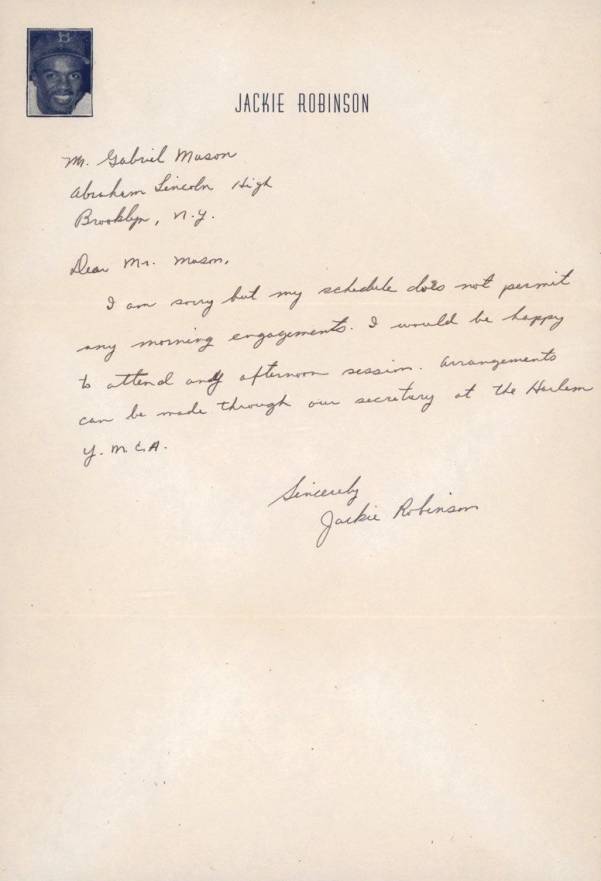 B
JACKIE ROBINSON
Mr. Gabriel Mason
Abraham Lincoln High
Brooklyn, N.Y.
Dear Mr. Mason,
I am sorry but my schedule does not permit
any morning engagements. I would be happy
to attend any afternoon session. Arrangements
can be made through our secretary at the Harlem
Y.M.C.A.
Sincerely
Jackie Robinson